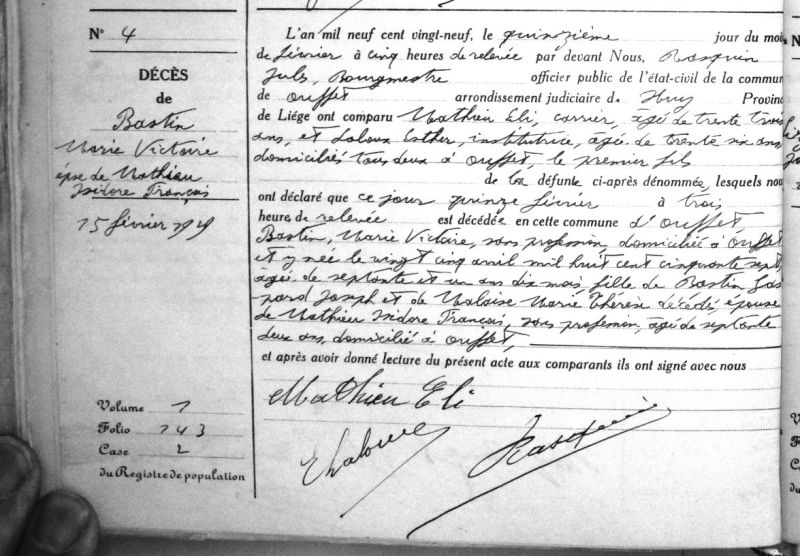 N° 4
DÉCÈS
de
Bastin
Marie Victoire
épse de Mathieu
Isidore François
15 février 1929
Volume 1
Folio 143
Case 2
du Registre de population
L'an mil neuf cent vingt-neuf, le quinzième jour du mois
de février à cinq heures de relevée par devant Nous, Rasquin
Jules, Bourgmestre officier public de l'état-civil de la commun
de Ouffet arrondissement judiciaire de Huy Provinc
de Liège ont comparu Mathieu Eli, carrier, âgé de trente trois
ans, et Laloux Esther, institutrice, âgée de trente six ans
domiciliés tous deux à Ouffet, le premier fils
de la défunte ci-après dénommée, lesquels nou
ont déclaré que ce jour quinze février à trois
heures de relevée est décédée en cette commune d'Ouffet,
Bastin, Marie Victoire, sans profession, domiciliée à Ouffet
et y née le vingt cinq avril mil huit cent cinquante sept,
âgée de septante et un ans dix mois, fille de Bastin Gas
pard Joseph et de Malaise Marie Thérèse décédés, épouse
de Mathieu Isidore François, sans profession, âgé de septante
deux ans, domicilié à Ouffet,
et après avoir donné lecture du présent acte aux comparants ils ont signé avec nous
Mathieu Eli
E Laloux
Rasquin